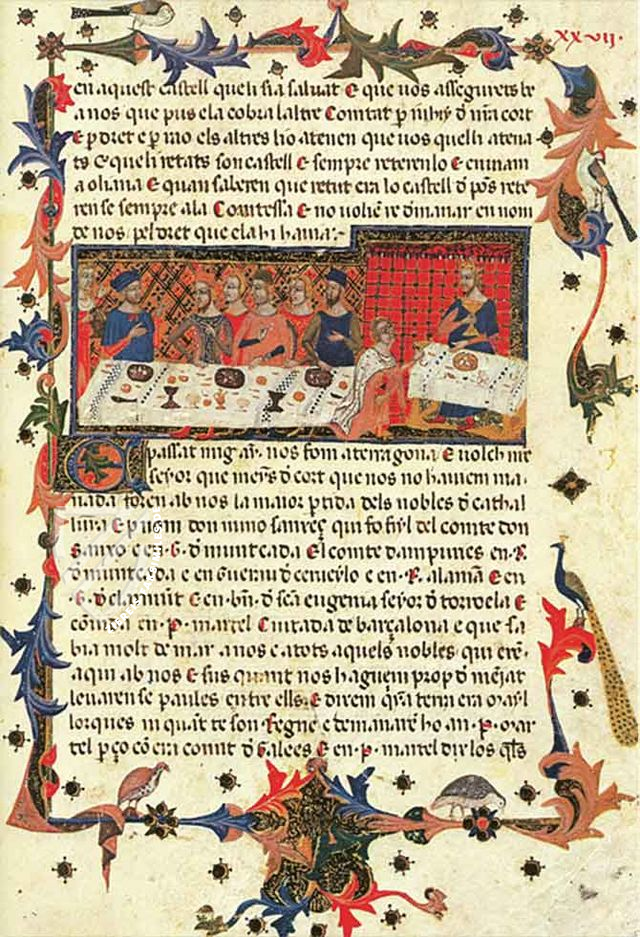 xxvij.
en aquest castell que li sia saluat E que uos assegurets te
a nos que pus ela cobra laltre Comtat p nibij d nra cort
E p dret e p nio els altres ho atenen que uos quelli atena
ts e que li retats son castell E sempre reterenlo E en mam
a oliana E quan saberen que retut era lo castell d pos rete
ren se sempre ala Comtessa E no uolien re dmanar en nom
de nos pel dret que ela hi hauia.
passat mig an nos fom a terragona E uolch nre
seyor que meyns d cort que nos no hauem ma
nada foren ab nos la maior ptida dels nobles d cathal
unya E p nom don nuno sanxeç qui fo fiyl del comte don
Sanxo e en .G. d muntcada El comte dampuries en .R.
d muntcada e en Guerau d cerueylo e en .R. alama E en
.G. d claramut E en .bn. d sca eugenia seyor d torroela E
e en .P. martel Ciutada de barçalona e que sa
bia molt de mar a nos e a tots aquels nobles qui eren
aqui ab nos E sus quant nos haguem prop d meniat
leuaren se paules entre ells. E direm quina terra era Mayl
lorques ni quat te son Regne e demanaren ho a n .P. mar
tel p ço com era comit d Galees E en .P. martel dix los quels